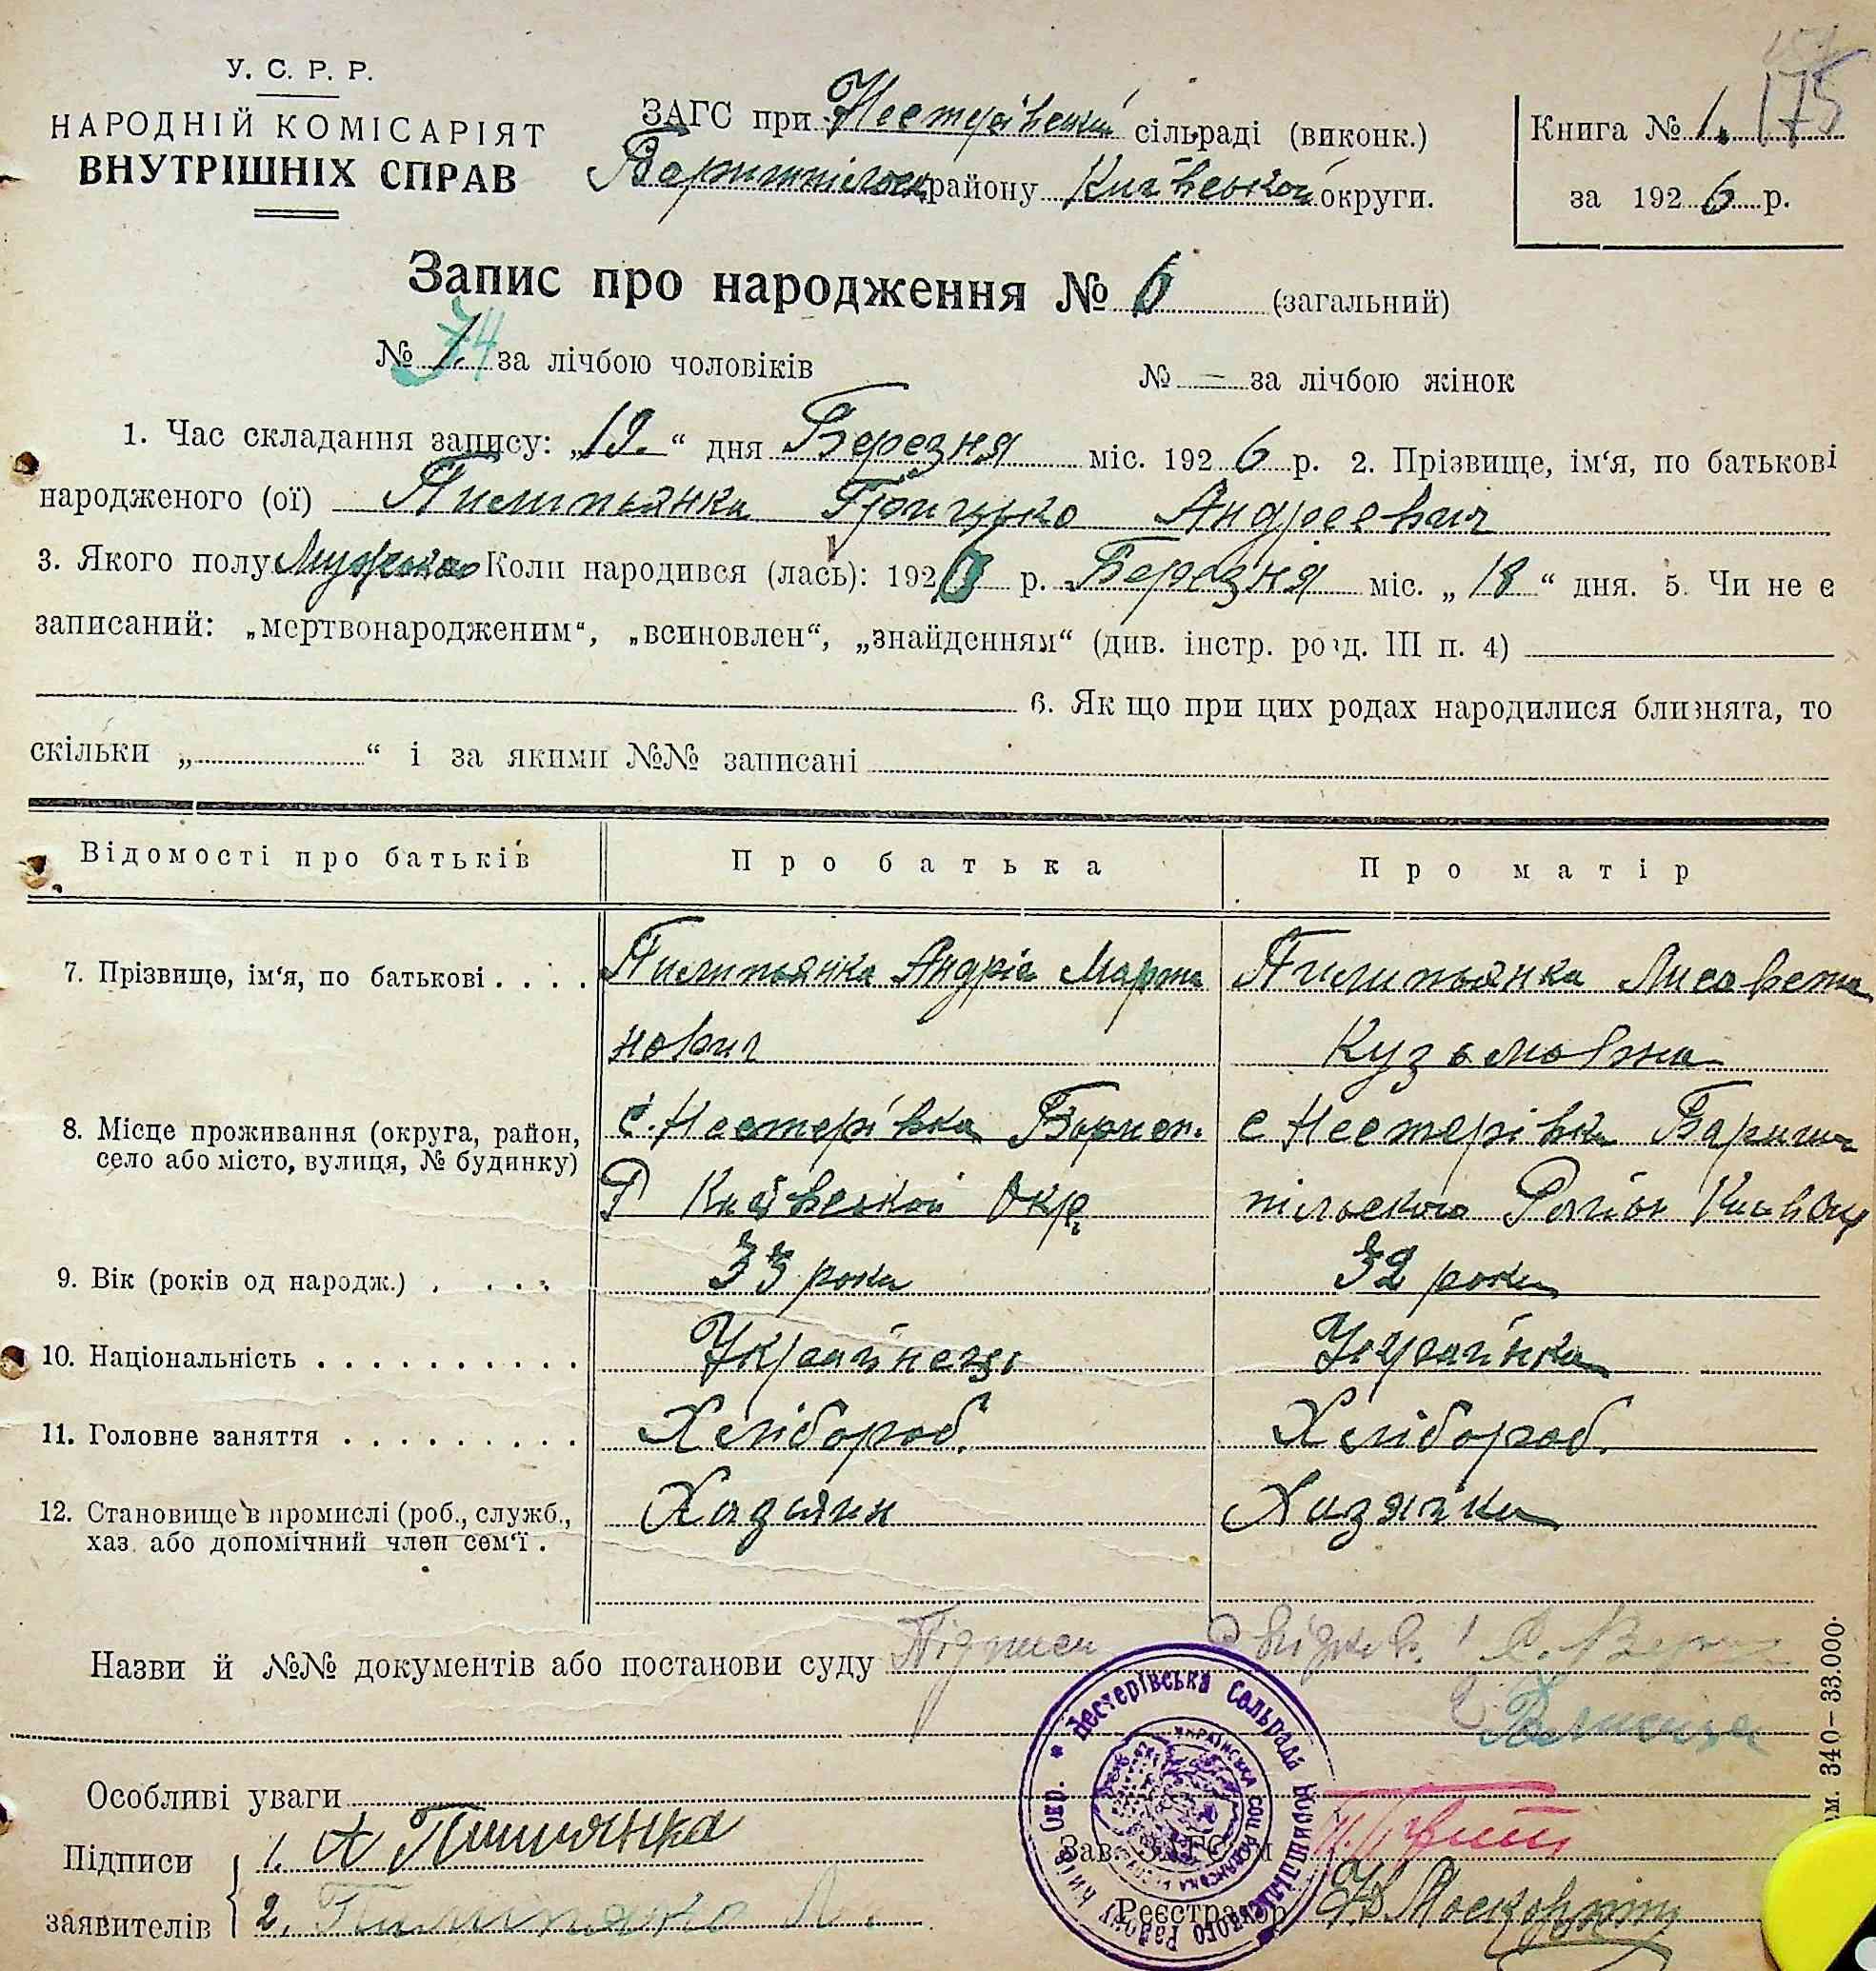 У. С. Р. Р.
НАРОДНІЙ КОМІСАРІЯТ
ВНУТРІШНІХ СПРАВ
ЗАГС при Нестерівській сільраді (виконк.)
району Київської округи.
Книга № 1. 175
за 1926 р.
Запис про народження № 6 (загальний)
№ 1. 74 за лічбою чоловіків
№ — за лічбою жінок
1. Час складання запису: „19.“ дня Березня міс. 1926 р. 2. Прізвище, ім‘я, по батькові
народженого (ої) Пилипьянка Грицько Андреевич
3. Якого полу Коли народився (лась): 1926 р. Березня міс. „18“ дня. 5. Чи не є
записаний: „мертвонародженим“, „всиновлен“, „знайденням“ (див. інстр. розд. III п. 4)
6. Як що при цих родах народилися близнята, то
скільки „ “ і за якими №№ записані
Відомості про батьків
Про батька
Про матір
7. Прізвище, ім‘я, по батькові
Пилипьянка Андрій Марти
нович
Пилипьянка Лисавета
Кузьмовна
8. Місце проживання (округа, район,
село або місто, вулиця, № будинку)
с. Нестерівка
Р Київської Окр.
с Нестерівка Бариш
пільского Район Київ Окр
9. Вік (років од народж.)
33 роки
32 роки
10. Національність
Українець
Українка
11. Головне заняття
Хлібороб.
Хлібороб.
12. Становище в промислі (роб., служб.,
хаз. або допомічний член сем‘ї.
Хазяин
Хазяйка
Назви й №№ документів або постанови суду Підписи Свідків!
Особливі уваги
Підписи
заявителів
1. А Пилипянка
2. Пилипянка Л.
Зав. ЗАГС‘ом
Реєстратор
Нестерівська Сельрада Бориспільського Району Київ Окр.
УКРАЇНСЬКА СОЦ РАДЯНСЬКА РЕСП
340—33.000.